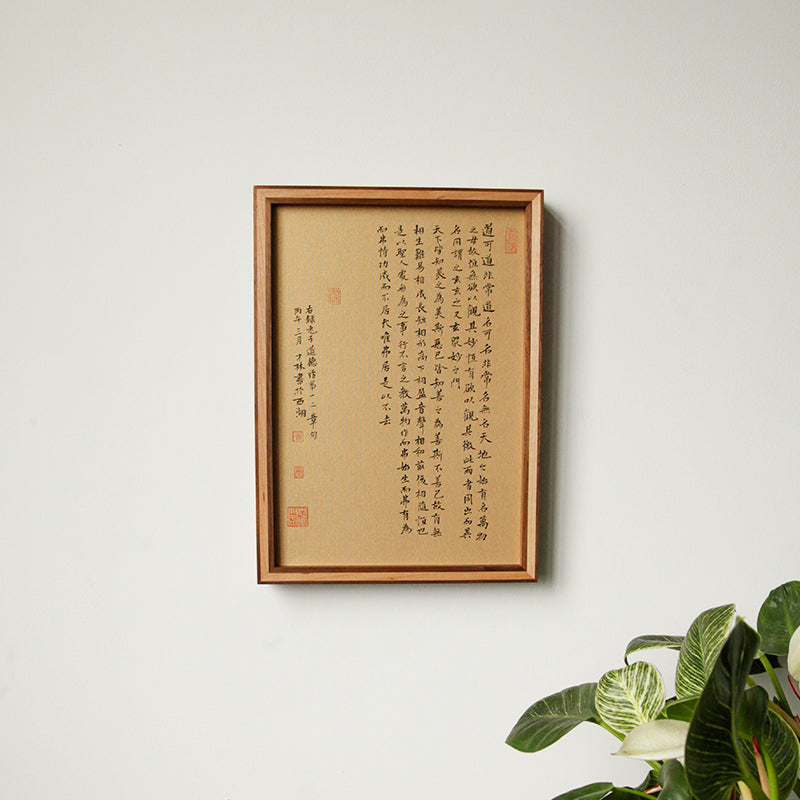 道可道非常道名可名非常名無名天地之始有名萬物
之母故恒無欲以觀其妙恒有欲以觀其徼此兩者同出而異
名同謂之玄玄之又玄眾妙之門
天下皆知美之為美斯惡已皆知善之為善斯不善已故有無
相生難易相成長短相形高下相盈音聲相和前後相隨恒也
是以聖人處無為之事行不言之教萬物作而弗始生而弗有為
而弗恃功成而不居夫唯弗居是以不去
右錄老子道德經第一二章句
丙午三月才林書於西湖